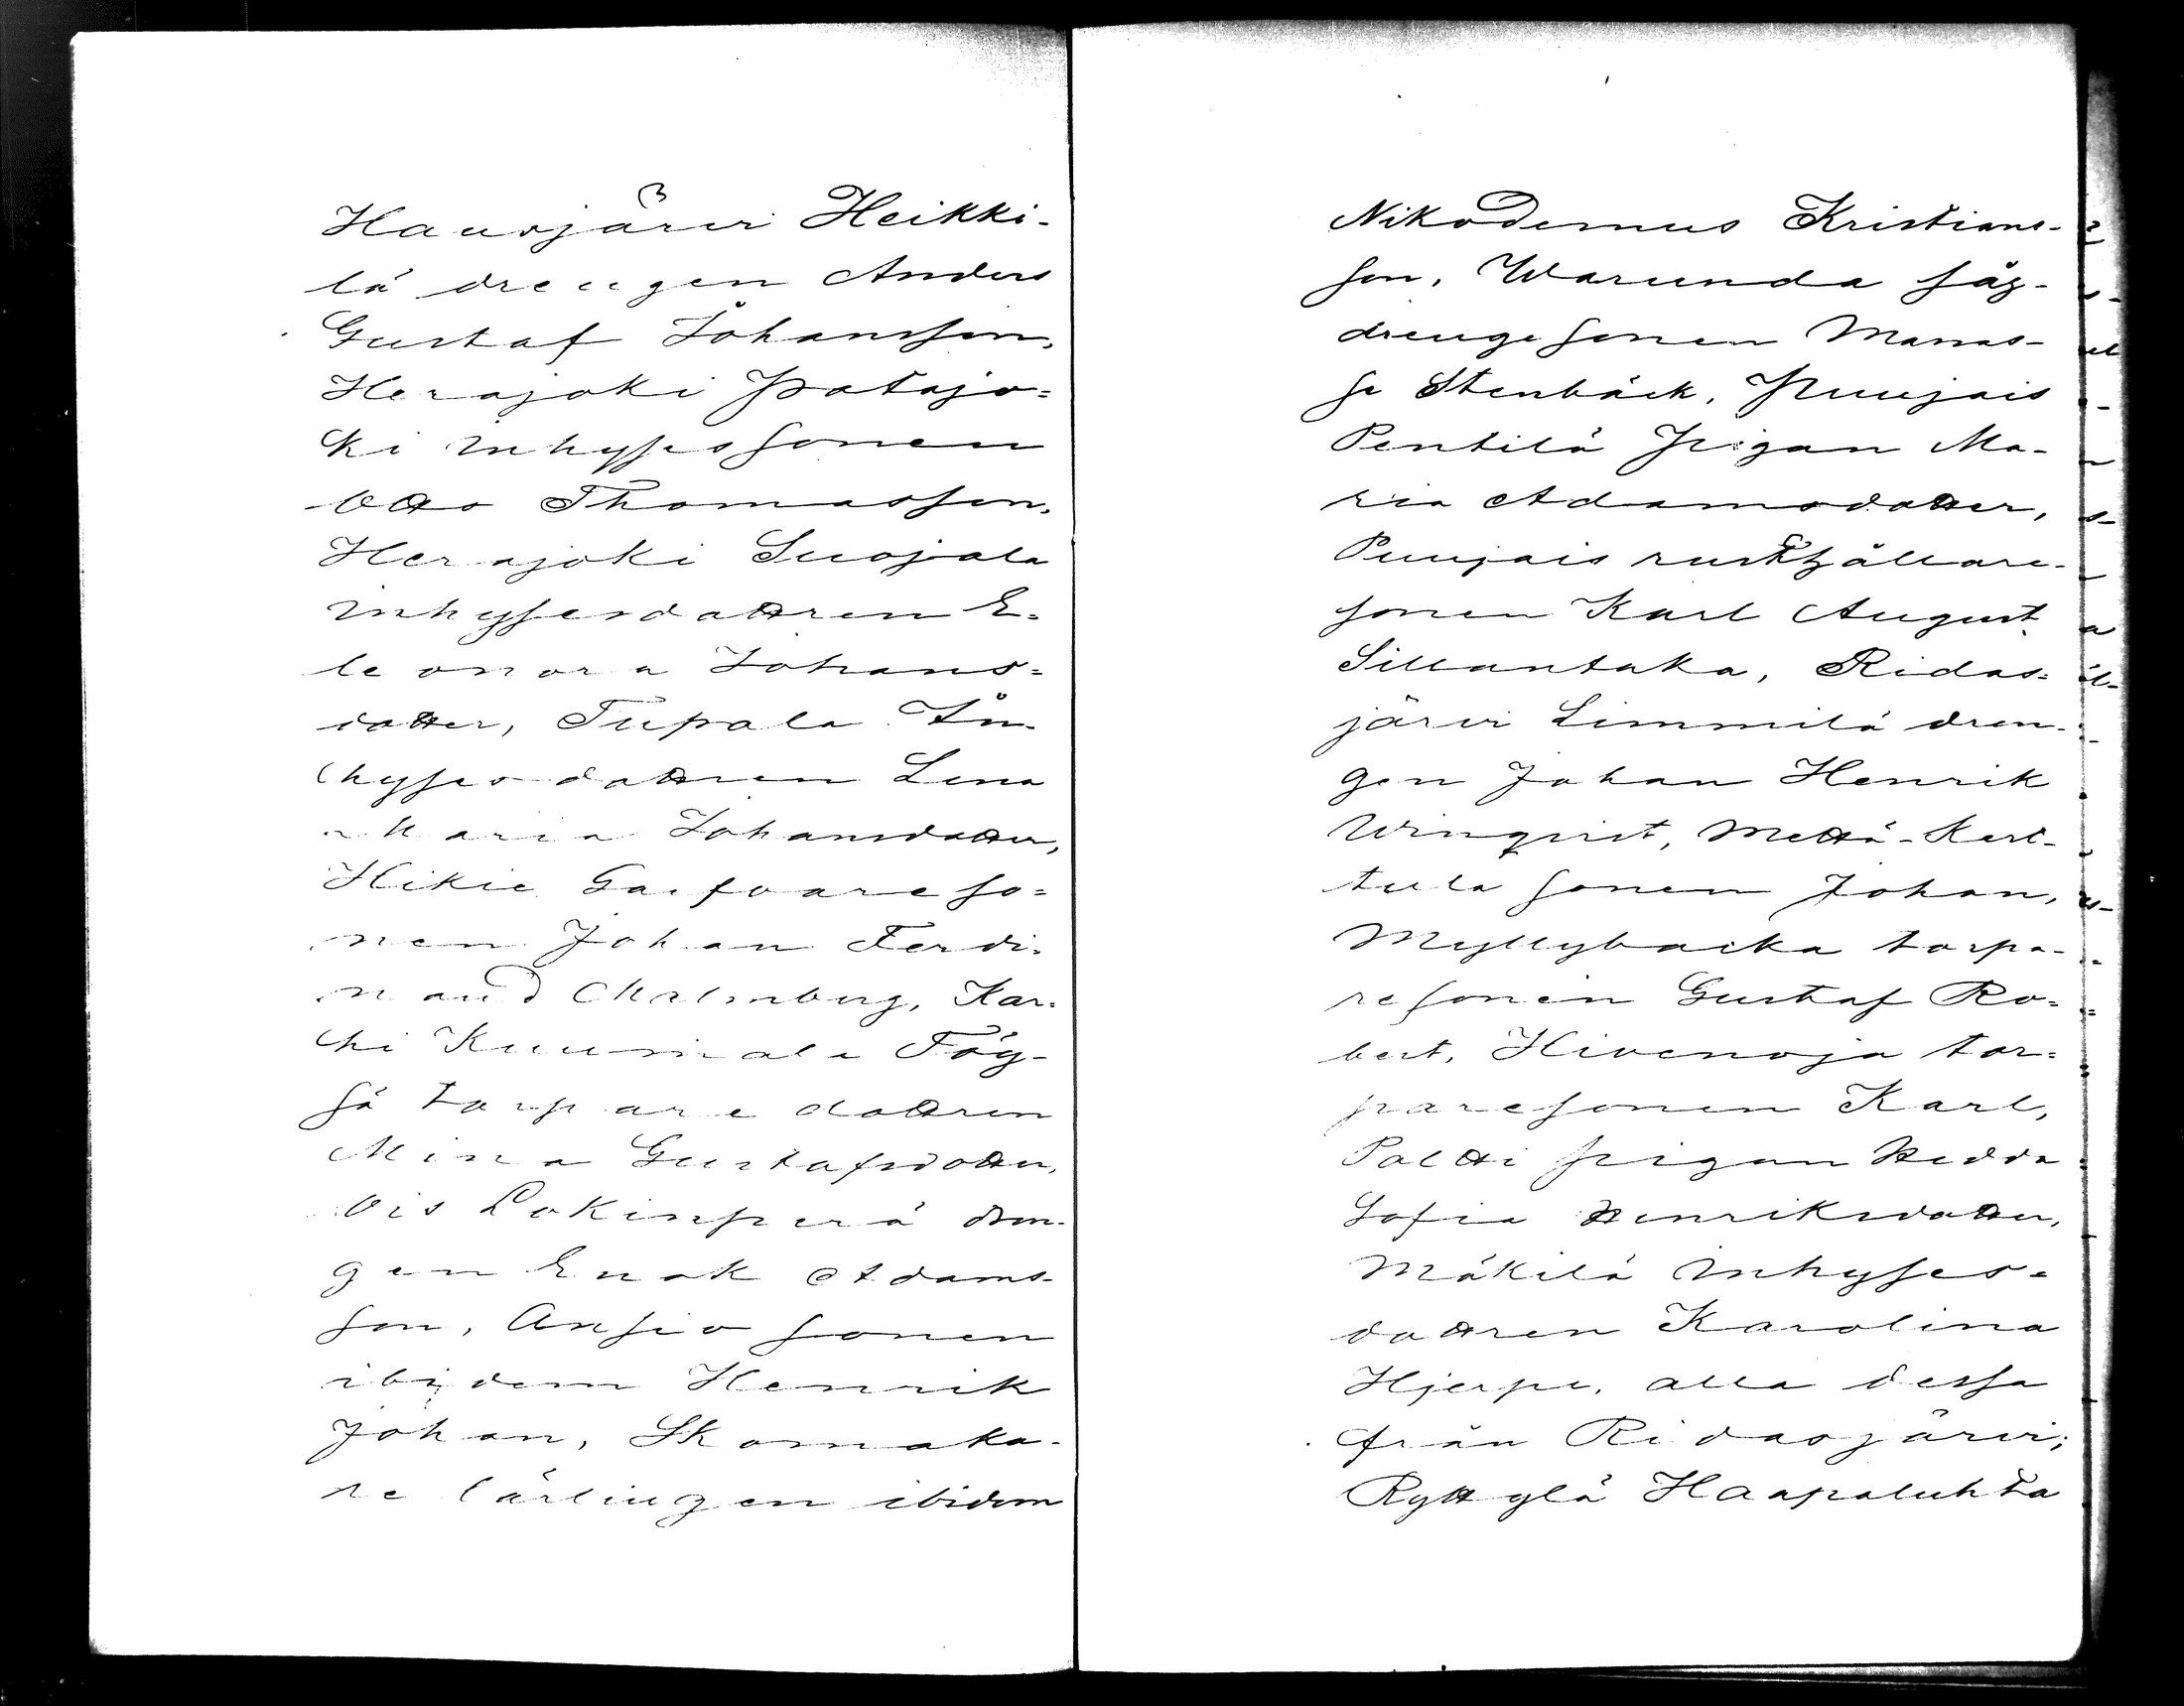 Hausjärvi Heikki-
lä drengen Anders
Gustaf Johansson,
Herajoki Patajo=
ki inhysessonen
Otto Thomasson,
Herajoki Suojala
inhysesdottren E=
leonora Johans=
dotter, Tupala In-
hysesdottren Lena
Maria Johansdotter,
Hikie Garfvareso=
nen Johan Ferdi=
nand Malmberg, Kar=
hi Kuumola Tög-
sä torparedottren
Mina Gustafsdotter,
Ois Lokinperä dren-
gen Enok Adams-
son, Ansio sonen
ibidem Henrik
Johan, Skomaka-
re lärlingen ibidem
Nikodemus Kristians-
son, Warunda såg-
drengesonen Manas-
se Stenbäck, Puujais
Pentilä Pigan Ma-
ria Adamsdotter,
Puujais rusthållare-
sonen Karl August
Sillantaka, Ridas=
järvi Limmilä dren-
gen Johan Henrik
Winqvist, Mettä-Kert-
tula sonen Johan,
Myllybacka torpa-
resonen Gustaf Ro=
bert, Hivenoja tor=
paresonen Karl,
Paltti pigan Hedda
Sofia Henriksdotter,
Mäkilä inhyses=
dottren Karolina
Hjerpe, alla dessa
från Ridasjärvi;
Ryttylä Haapaluhta